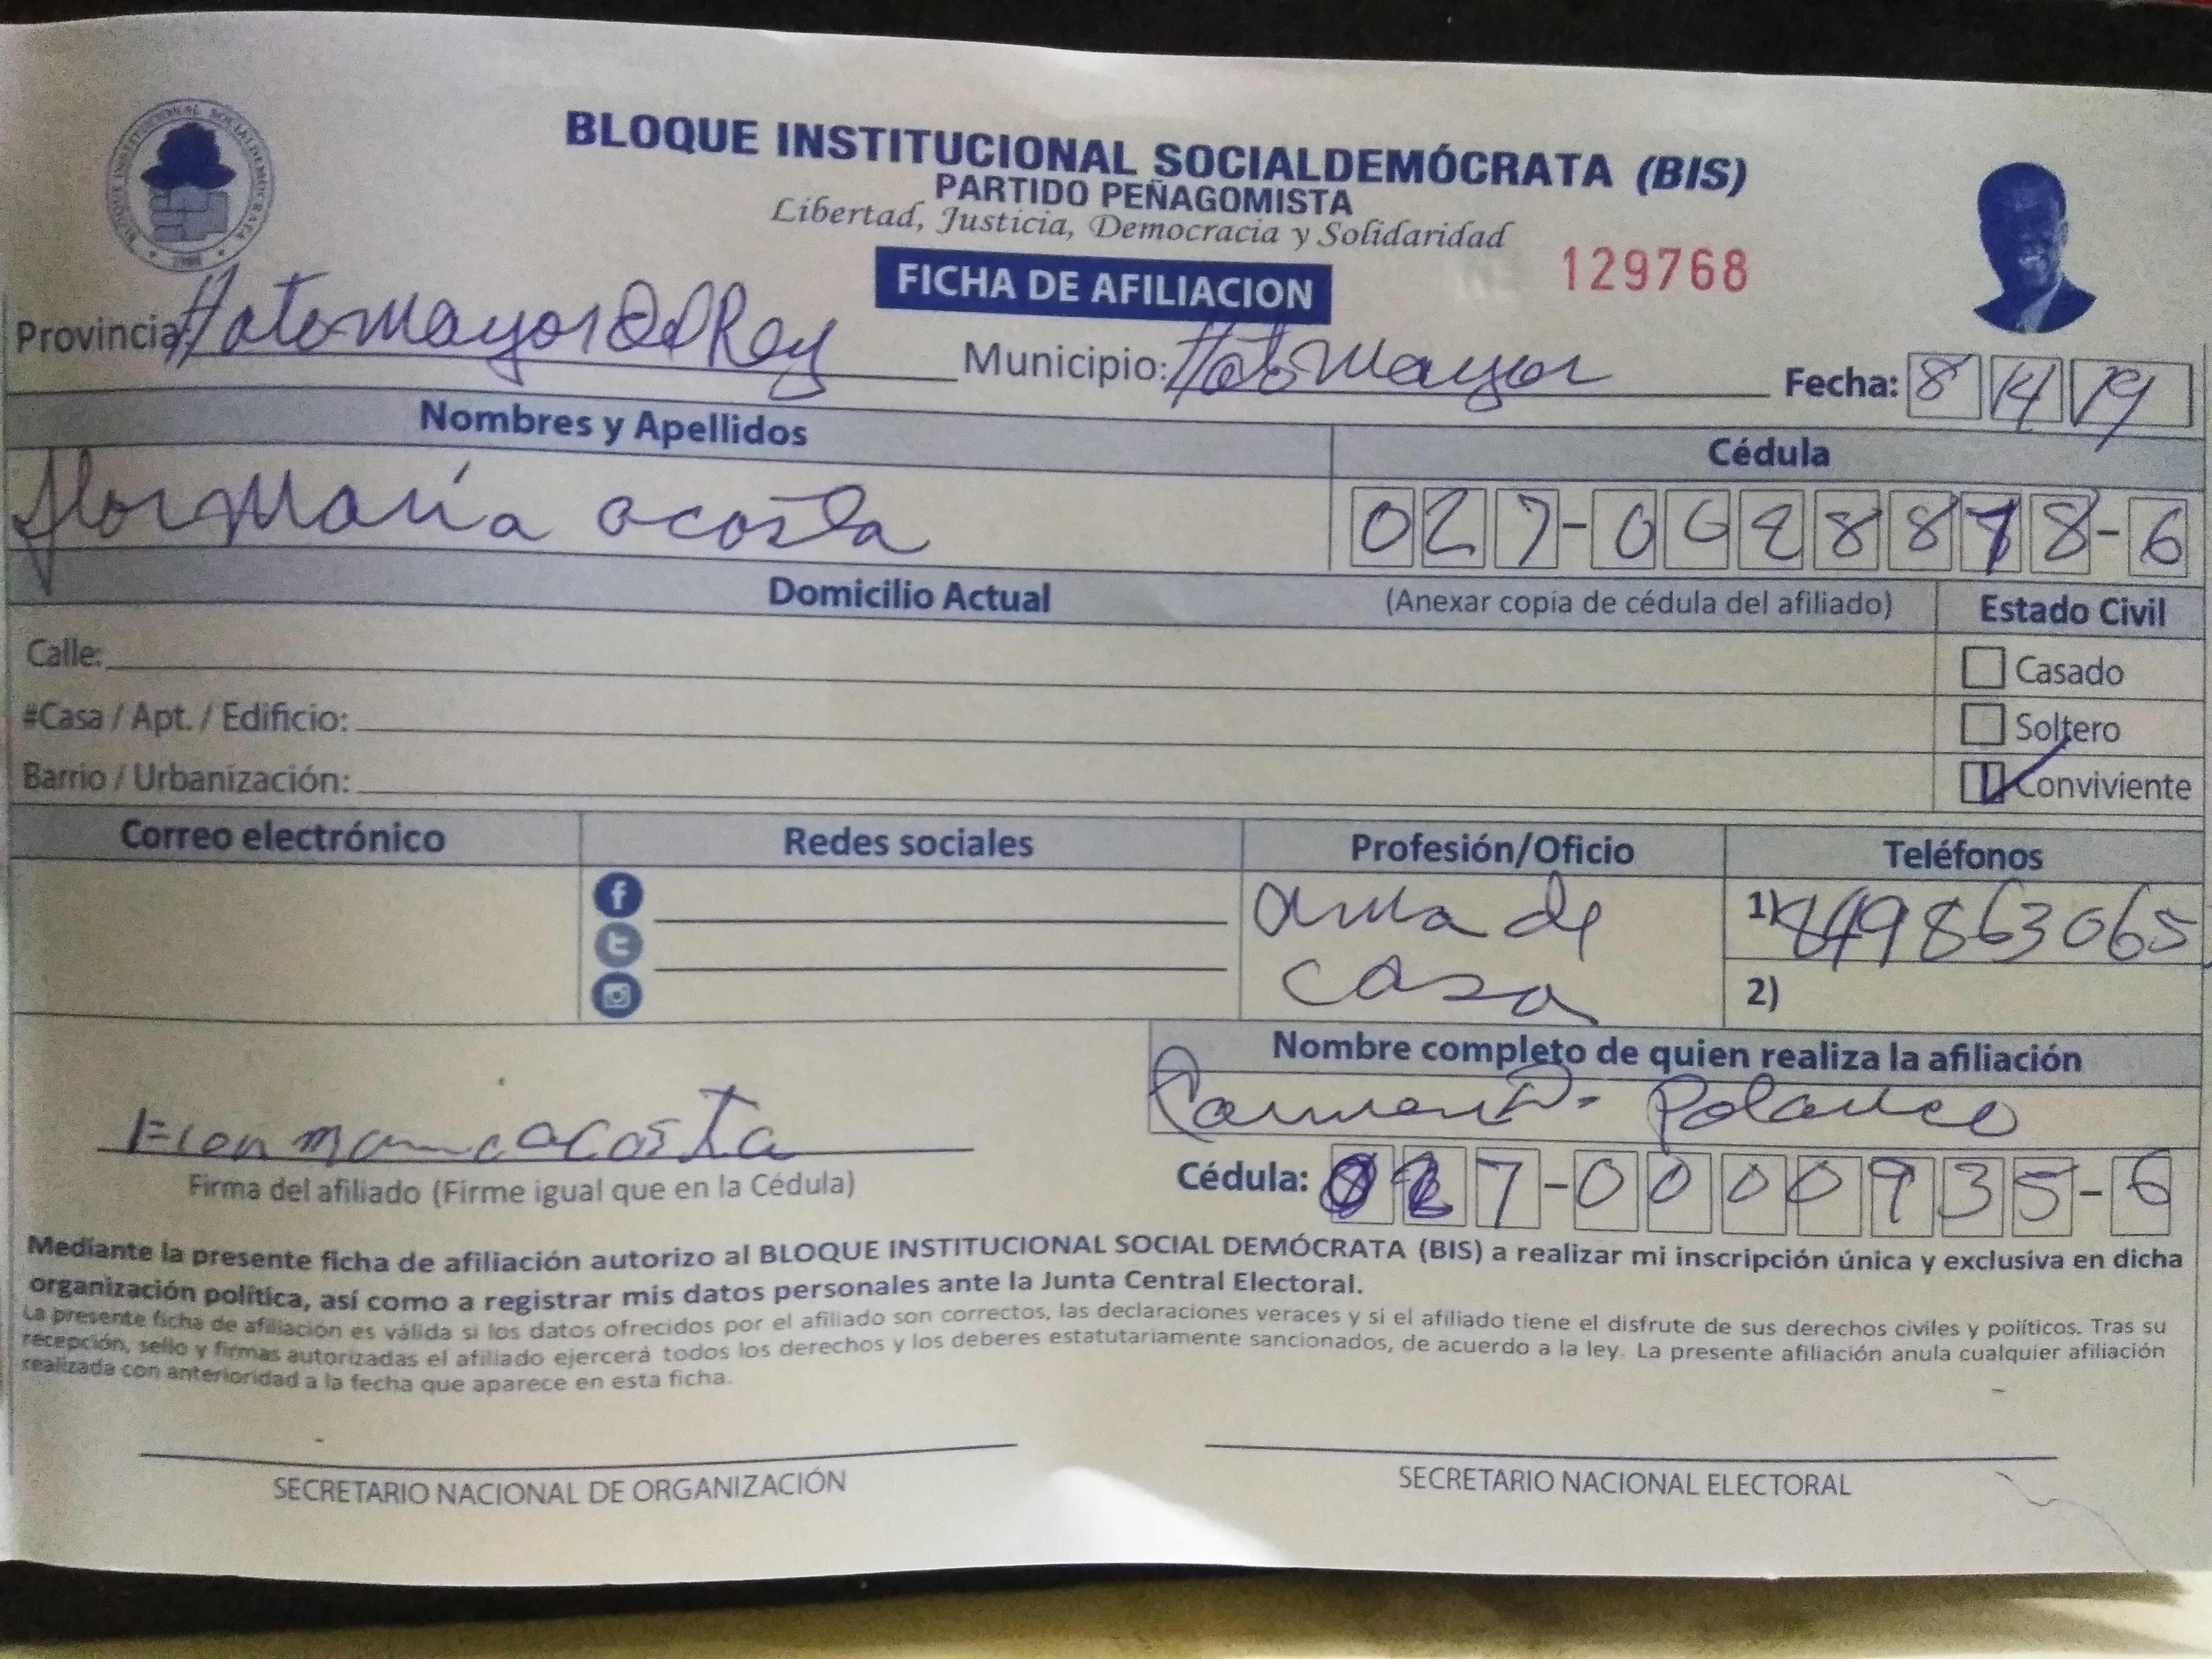 BLOQUE INSTITUCIONAL SOCIALDEMÓCRATA
BLOQUE INSTITUCIONAL SOCIALDEMÓCRATA (BIS)
PARTIDO PEÑAGOMISTA
Libertad, Justicia, Democracia y Solidaridad
FICHA DE AFILIACION
129768
Provincia: Hato Mayor Del Rey Municipio: Hato Mayor Fecha: 8 14 19
Nombres y Apellidos Cédula
flor María acosta 027-0028878-6
Domicilio Actual (Anexar copia de cédula del afiliado) Estado Civil
Calle: Casado
#Casa / Apt. / Edificio: Soltero
Barrio / Urbanización: Conviviente
Correo electrónico Redes sociales Profesión/Oficio Teléfonos
ama de
casa
1) 849863065
2)
Nombre completo de quien realiza la afiliación
Carmen D. Polanco
Flor maria acosta
Firma del afiliado (Firme igual que en la Cédula)
Cédula: 027-0000935-6
Mediante la presente ficha de afiliación autorizo al BLOQUE INSTITUCIONAL SOCIAL DEMÓCRATA (BIS) a realizar mi inscripción única y exclusiva en dicha
organización política, así como a registrar mis datos personales ante la Junta Central Electoral.
La presente ficha de afiliación es válida si los datos ofrecidos por el afiliado son correctos, las declaraciones veraces y si el afiliado tiene el disfrute de sus derechos civiles y políticos. Tras su
recepción, sello y firmas autorizadas el afiliado ejercerá todos los derechos y los deberes estatutariamente sancionados, de acuerdo a la ley. La presente afiliación anula cualquier afiliación
realizada con anterioridad a la fecha que aparece en esta ficha.
SECRETARIO NACIONAL DE ORGANIZACIÓN SECRETARIO NACIONAL ELECTORAL